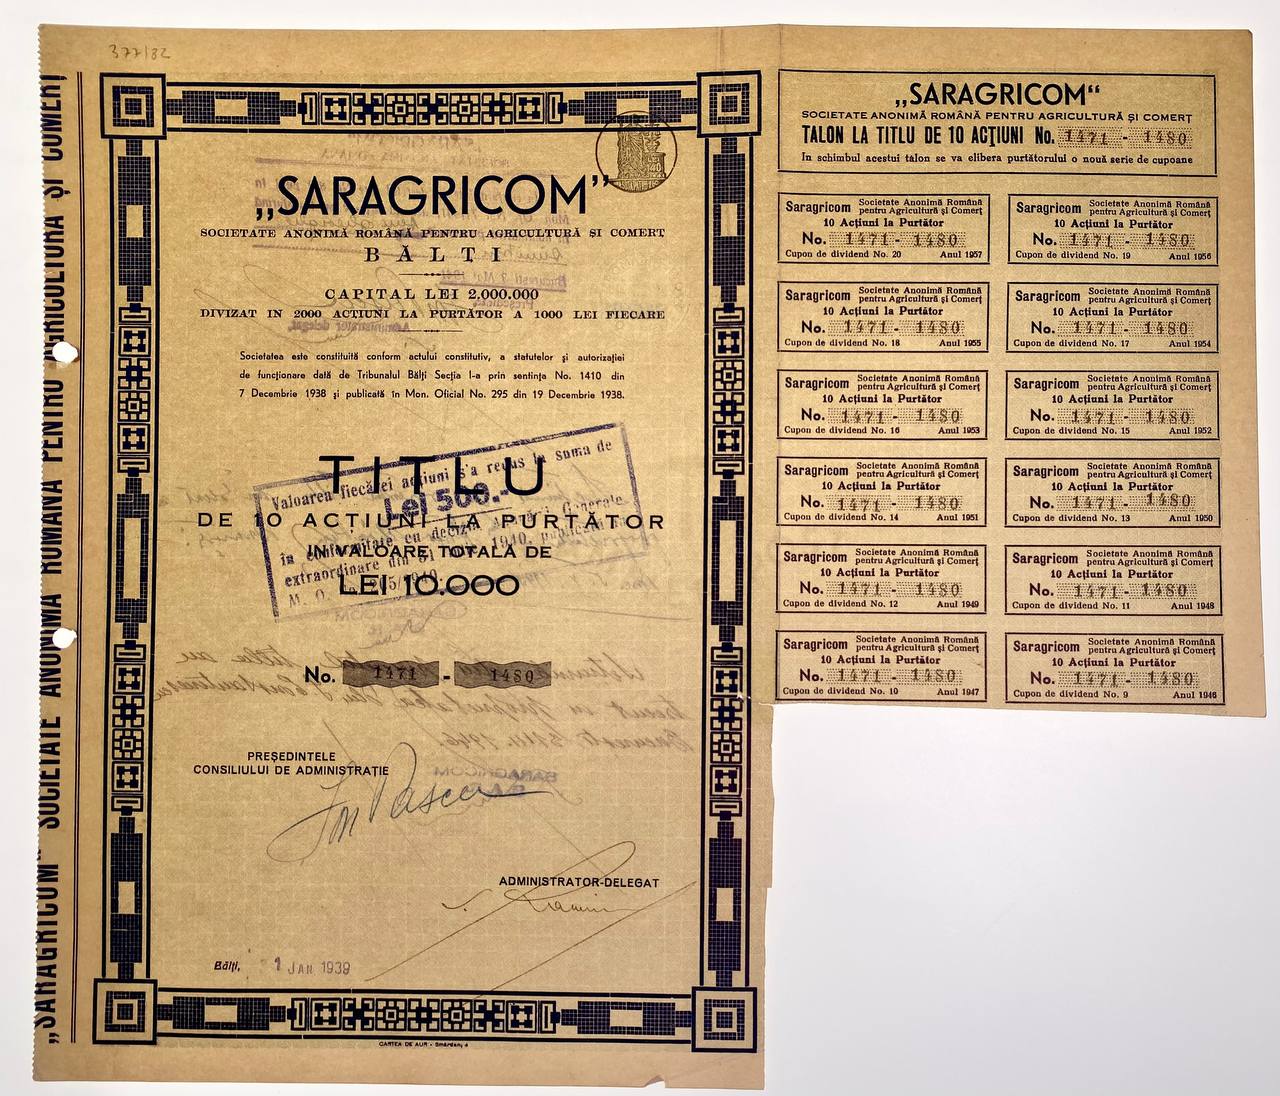 377/82
„SARAGRICOM”
SOCIETATE ANONIMĂ ROMÂNĂ PENTRU AGRICULTURĂ ȘI COMERȚ
BĂLȚI
CAPITAL LEI 2.000.000
DIVIZAT IN 2000 ACȚIUNI LA PURTĂTOR A 1000 LEI FIECARE
Societatea este constituită conform actului constitutiv, a statutelor și autorizației
de funcționare dată de Tribunalul Bălți Secția I-a prin sentința No. 1410 din
7 Decembrie 1938 și publicată în Mon. Oficial No. 295 din 19 Decembrie 1938.
TITLU
DE 10 ACȚIUNI LA PURTĂTOR
IN VALOARE TOTALĂ DE
LEI 10.000
Valoarea fiecărei acțiuni s'a redus la suma de
Lei 500.-
in conformitate cu decizia Generale
extraordinare din 1940,
M. O.
No. 1471 - 1480
PREȘEDINTELE
CONSILIULUI DE ADMINISTRAȚIE
ADMINISTRATOR-DELEGAT
Bălți, 1 JAN 1939
CARTEA DE AUR - Smârdan, 4
„SARAGRICOM” SOCIETATE ANONIMĂ ROMÂNĂ PENTRU AGRICULTURĂ ȘI COMERȚ
„SARAGRICOM“
SOCIETATE ANONIMĂ ROMÂNĂ PENTRU AGRICULTURĂ ȘI COMERȚ
TALON LA TITLU DE 10 ACȚIUNI No. 1471 - 1480
In schimbul acestui talon se va elibera purtătorului o nouă serie de cupoane
Saragricom Societate Anonimă Română
pentru Agricultură și Comerț
10 Acțiuni la Purtător
No. 1471 - 1480
Cupon de dividend No. 20 Anul 1957
Saragricom Societate Anonimă Română
pentru Agricultură și Comerț
10 Acțiuni la Purtător
No. 1471 - 1480
Cupon de dividend No. 19 Anul 1956
Saragricom Societate Anonimă Română
pentru Agricultură și Comerț
10 Acțiuni la Purtător
No. 1471 - 1480
Cupon de dividend No. 18 Anul 1955
Saragricom Societate Anonimă Română
pentru Agricultură și Comerț
10 Acțiuni la Purtător
No. 1471 - 1480
Cupon de dividend No. 17 Anul 1954
Saragricom Societate Anonimă Română
pentru Agricultură și Comerț
10 Acțiuni la Purtător
No. 1471 - 1480
Cupon de dividend No. 16 Anul 1953
Saragricom Societate Anonimă Română
pentru Agricultură și Comerț
10 Acțiuni la Purtător
No. 1471 - 1480
Cupon de dividend No. 15 Anul 1952
Saragricom Societate Anonimă Română
pentru Agricultură și Comerț
10 Acțiuni la Purtător
No. 1471 - 1480
Cupon de dividend No. 14 Anul 1951
Saragricom Societate Anonimă Română
pentru Agricultură și Comerț
10 Acțiuni la Purtător
No. 1471 - 1480
Cupon de dividend No. 13 Anul 1950
Saragricom Societate Anonimă Română
pentru Agricultură și Comerț
10 Acțiuni la Purtător
No. 1471 - 1480
Cupon de dividend No. 12 Anul 1949
Saragricom Societate Anonimă Română
pentru Agricultură și Comerț
10 Acțiuni la Purtător
No. 1471 - 1480
Cupon de dividend No. 11 Anul 1948
Saragricom Societate Anonimă Română
pentru Agricultură și Comerț
10 Acțiuni la Purtător
No. 1471 - 1480
Cupon de dividend No. 10 Anul 1947
Saragricom Societate Anonimă Română
pentru Agricultură și Comerț
10 Acțiuni la Purtător
No. 1471 - 1480
Cupon de dividend No. 9 Anul 1946